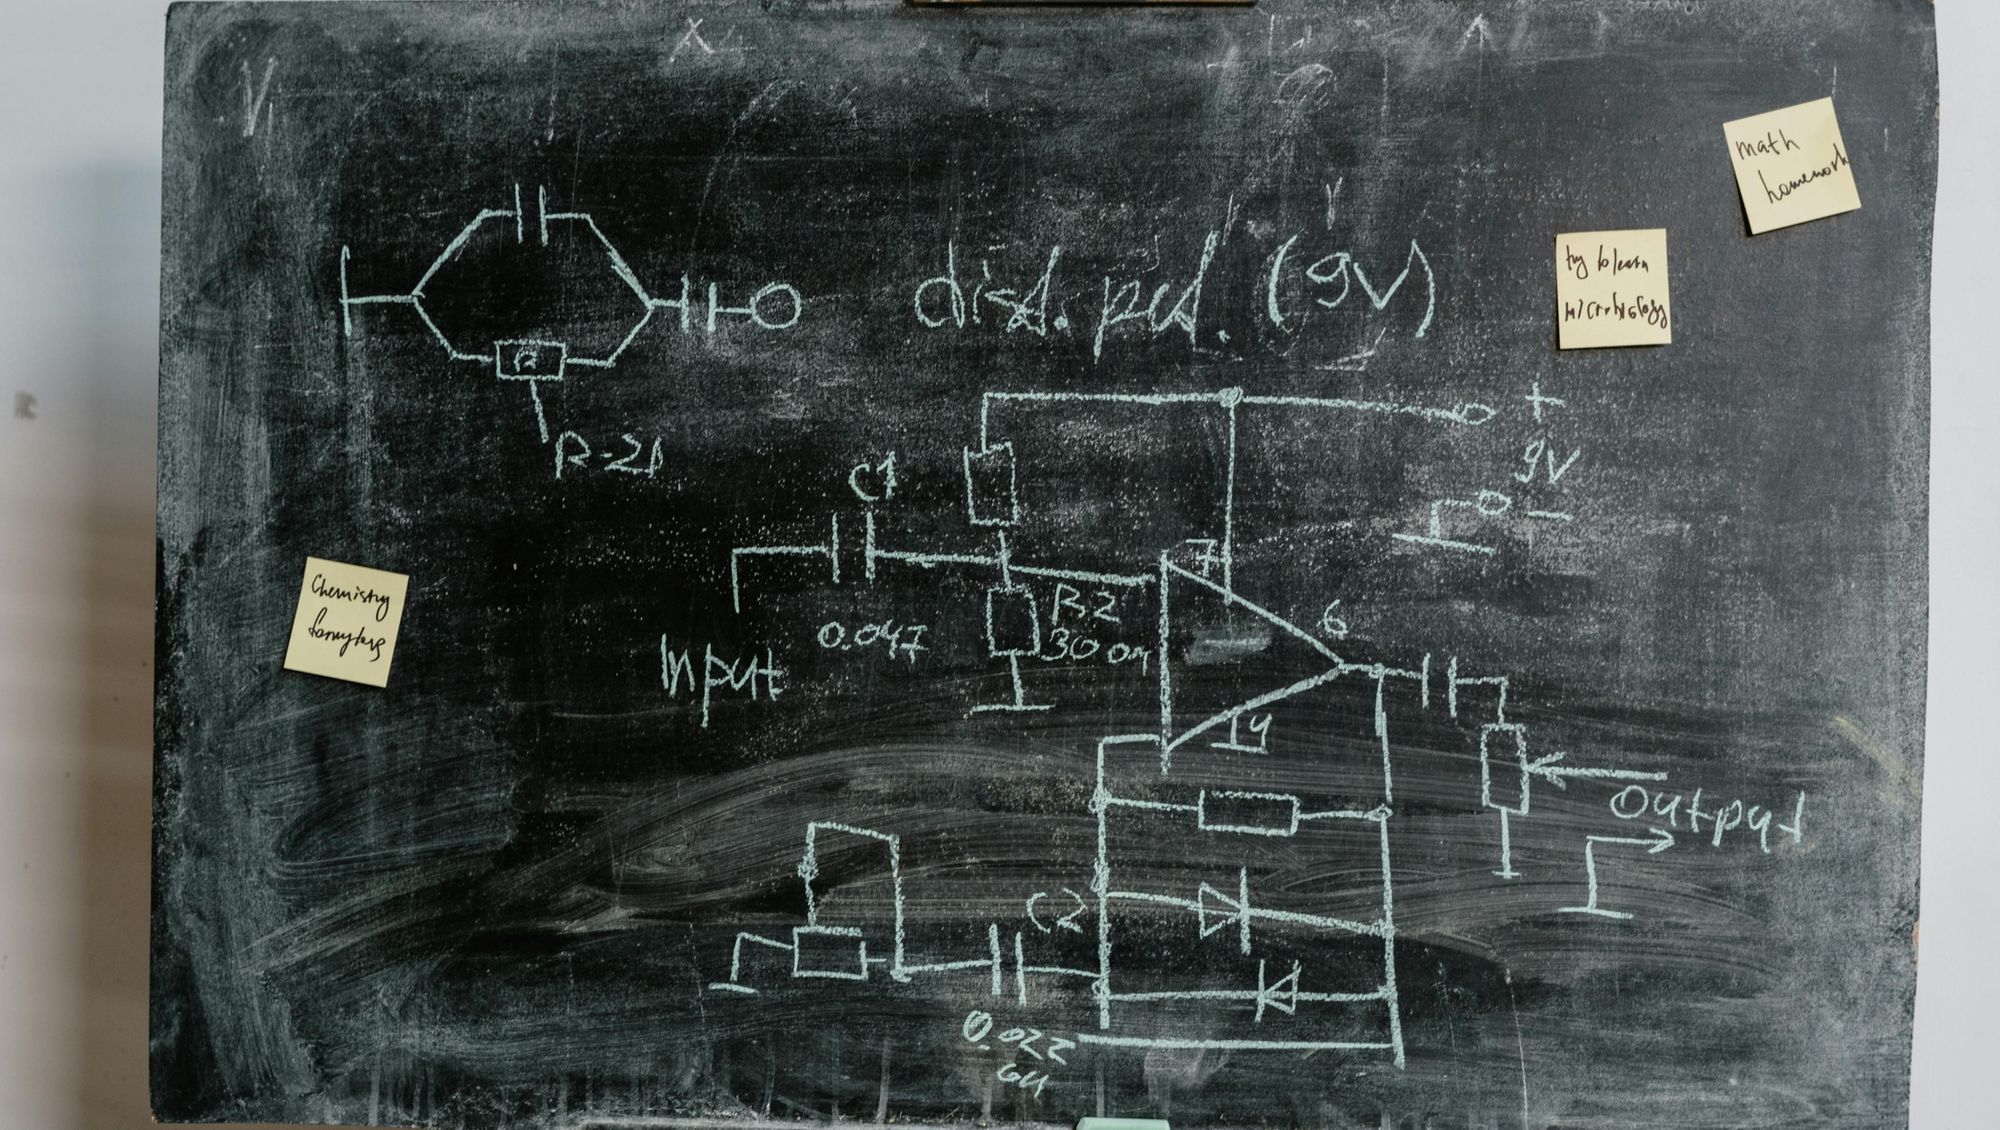 math
homework
try to learn
microbiology
dist. ped. (9V)
R
R-21
+
9V
-
C1
0.047
Input
R2
300
7
6
14
Output
C2
0.022
Chemistry